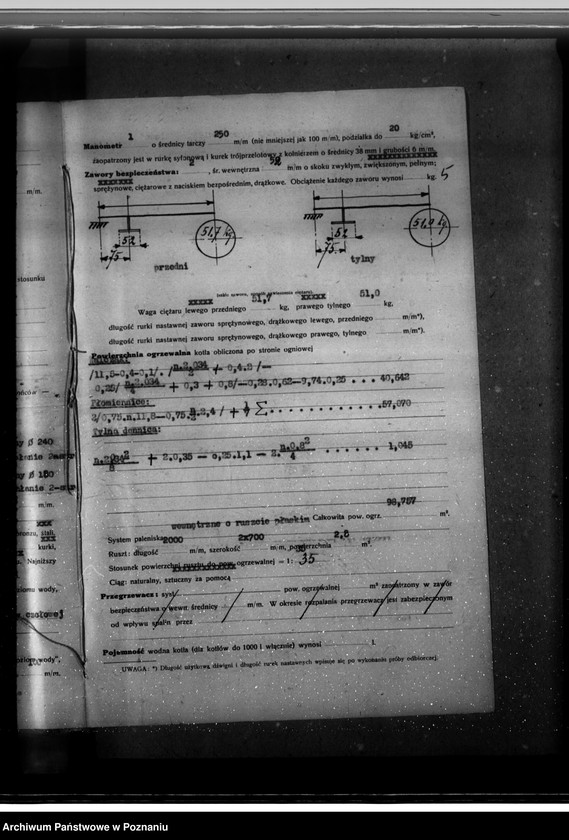 Manometr 1 o średnicy tarczy 250 m/m (nie mniejszej jak 100 m/m), podziałka do 20 kg/cm²,
zaopatrzony jest w rurkę syfonową i kurek trójprzelotowy z kołnierzem o średnicy 38 mm i grubości 6 m/m.
Zawory bezpieczeństwa: 2, śr. wewnętrzna 52 m/m o skoku zwykłym, zwiększonym, pełnym;
sprężynowe, ciężarowe z naciskiem bezpośrednim, drążkowe. Obciążenie każdego zaworu wynosi kg. 5
51,7 kg 51,0 kg
52 52
75 75
przedni tylny
Waga ciężaru lewego przedniego 51,7 kg, prawego tylnego 51,0 kg,
długość rurki nastawnej zaworu sprężynowego, drążkowego lewego, przedniego m/m*),
długość rurki nastawnej zaworu sprężynowego, drążkowego prawego, tylnego m/m*).
Powierzchnia ogrzewalna kotła obliczona po stronie ogniowej
/11,8-0,4-0,1/. + 0,4.2 /—
+ 0,3 + 0,8/—0,28.0,62—9,74.0,25 . . . 40,642
Płomienice:
2/0,75.п.11,8—0,75. 2,4 / + Σ . . . . . . . . 57,070
Tylna dennica:
+ 2.0,35 — 0,25.1,1 — 2. п.0,8² / 4 . . . . . . 1,045
98,757
wewnętrzne o ruszcie płaskim Całkowita pow. ogrz. m².
System paleniska
Ruszt: długość 2000 m/m, szerokość 2x700 m/m, powierzchnia 2,8 m².
Stosunek powierzchni rusztu do pow. ogrzewalnej = 1 : 35
Ciąg: naturalny, sztuczny za pomocą
Przegrzewacz: syst. pow. ogrzewalnej m² zaopatrzony w zawór
bezpieczeństwa o wewn. średnicy m/m. W okresie rozpalania przegrzewacz jest zabezpieczonym
od wpływu spalin przez
Pojemność wodna kotła (dla kotłów do 1000 l włącznie) wynosi l.
UWAGA: *) Długość użytkową dźwigni i długość rurek nastawnych wpisuje się po wykonaniu próby odbiorczej.
m/m.
stosunku
ø 240
ø 150
m/m.
stali,
kurki,
Najniższy
wody,
czołowej
wody",
m/m.
Archiwum Państwowe w Poznaniu